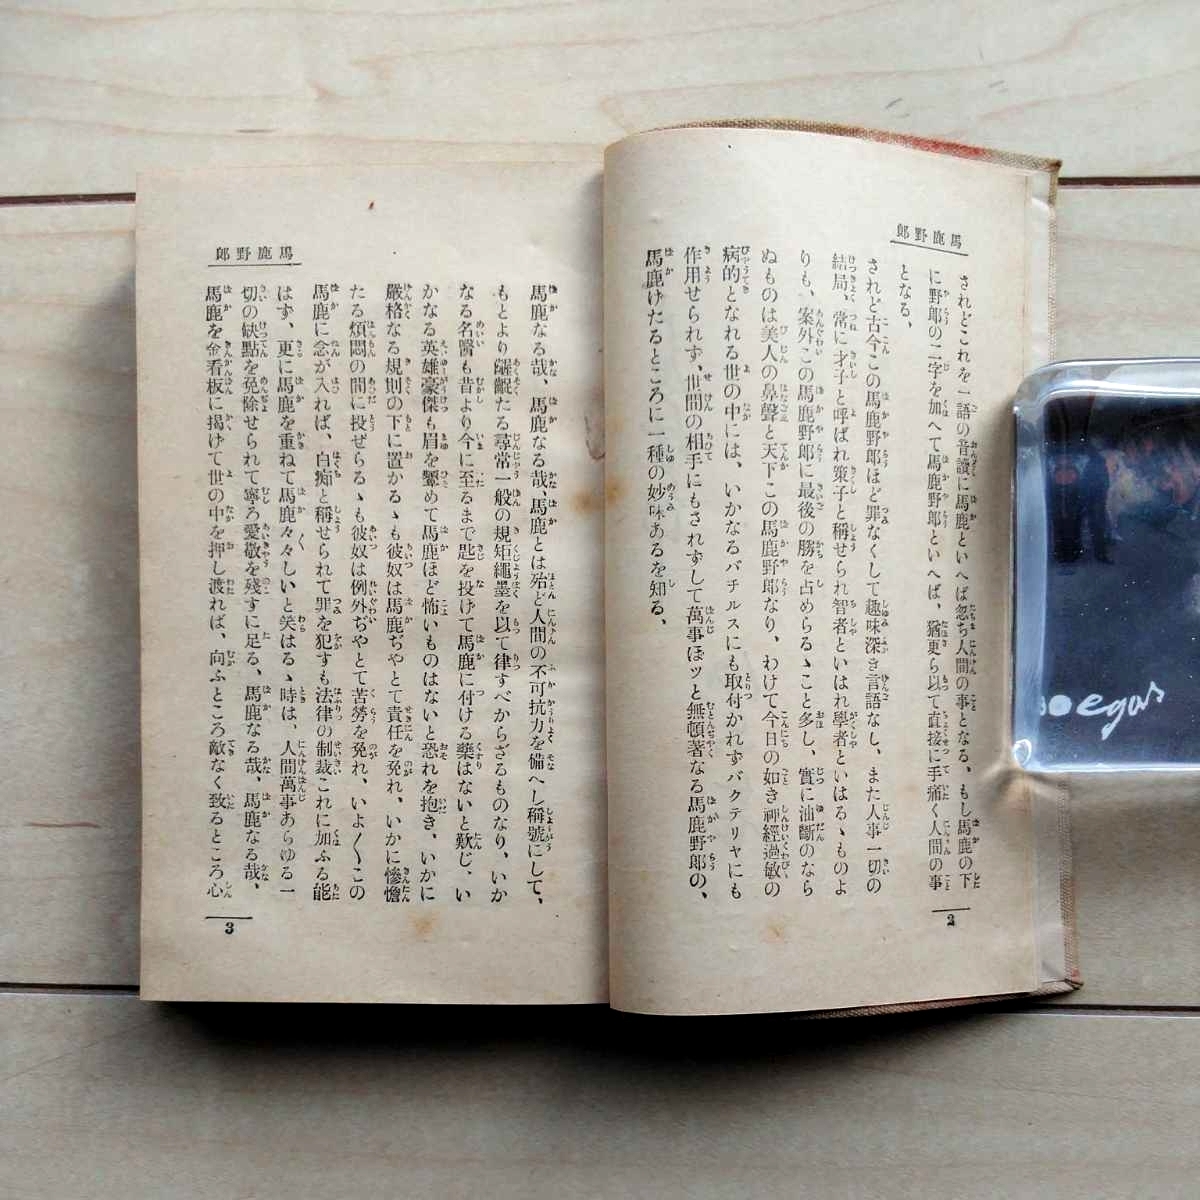 郎野鹿馬
されどこれを一語の音讀に馬鹿といへば忽ち人間の事となる、もし馬鹿の下
に野郎の二字を加へて馬鹿野郎といへば、猶更ら以て直接に手痛く人間の事
となる、
されど古今この馬鹿野郎ほど罪なくして趣味深き言語なし、また人事一切の
結局、常に才子と呼ばれ策子と稱せられ智者といはれ學者といはるゝものよ
りも、案外この馬鹿野郎に最後の勝を占めらるゝこと多し、實に油斷のなら
ぬものは美人の鼻聲と天下この馬鹿野郎なり、わけて今日の如き神經過敏の
病的となれる世の中には、いかなるバチルスにも取付かれずバクテリヤにも
作用せられず、世間の相手にもされずして萬事ぼッと無頓著なる馬鹿野郎の、
馬鹿げたるところに一種の妙味あるを知る、
2
郎野鹿馬
馬鹿なる哉、馬鹿なる哉、馬鹿とは殆ど人間の不可抗力を備へし稱號にして、
もとより齷齪たる尋常一般の規矩繩墨を以て律すべからざるものなり、いか
なる名醫も昔より今に至るまで匙を投げて馬鹿に付ける藥はないと歎じ、い
かなる英雄豪傑も眉を顰めて馬鹿ほど怖いものはないと恐れを抱き、いかに
嚴格なる規則の下に置かるゝも彼奴は馬鹿ぢやとて責任を免れ、いかに慘憺
たる煩悶の間に投ぜらるゝも彼奴は例外ぢやとて苦勞を免れ、いよ〳〵この
馬鹿に念が入れば、白痴と稱せられて罪を犯すも法律の制裁これに加ふる能
はず、更に馬鹿を重ねて馬鹿々々しいと笑はるゝ時は、人間萬事あらゆる一
切の缺點を免除せられて寧ろ愛敬を殘すに足る、馬鹿なる哉、馬鹿なる哉、
馬鹿を金看板に揭げて世の中を押し渡れば、向ふところ敵なく致るところ心
3
egas